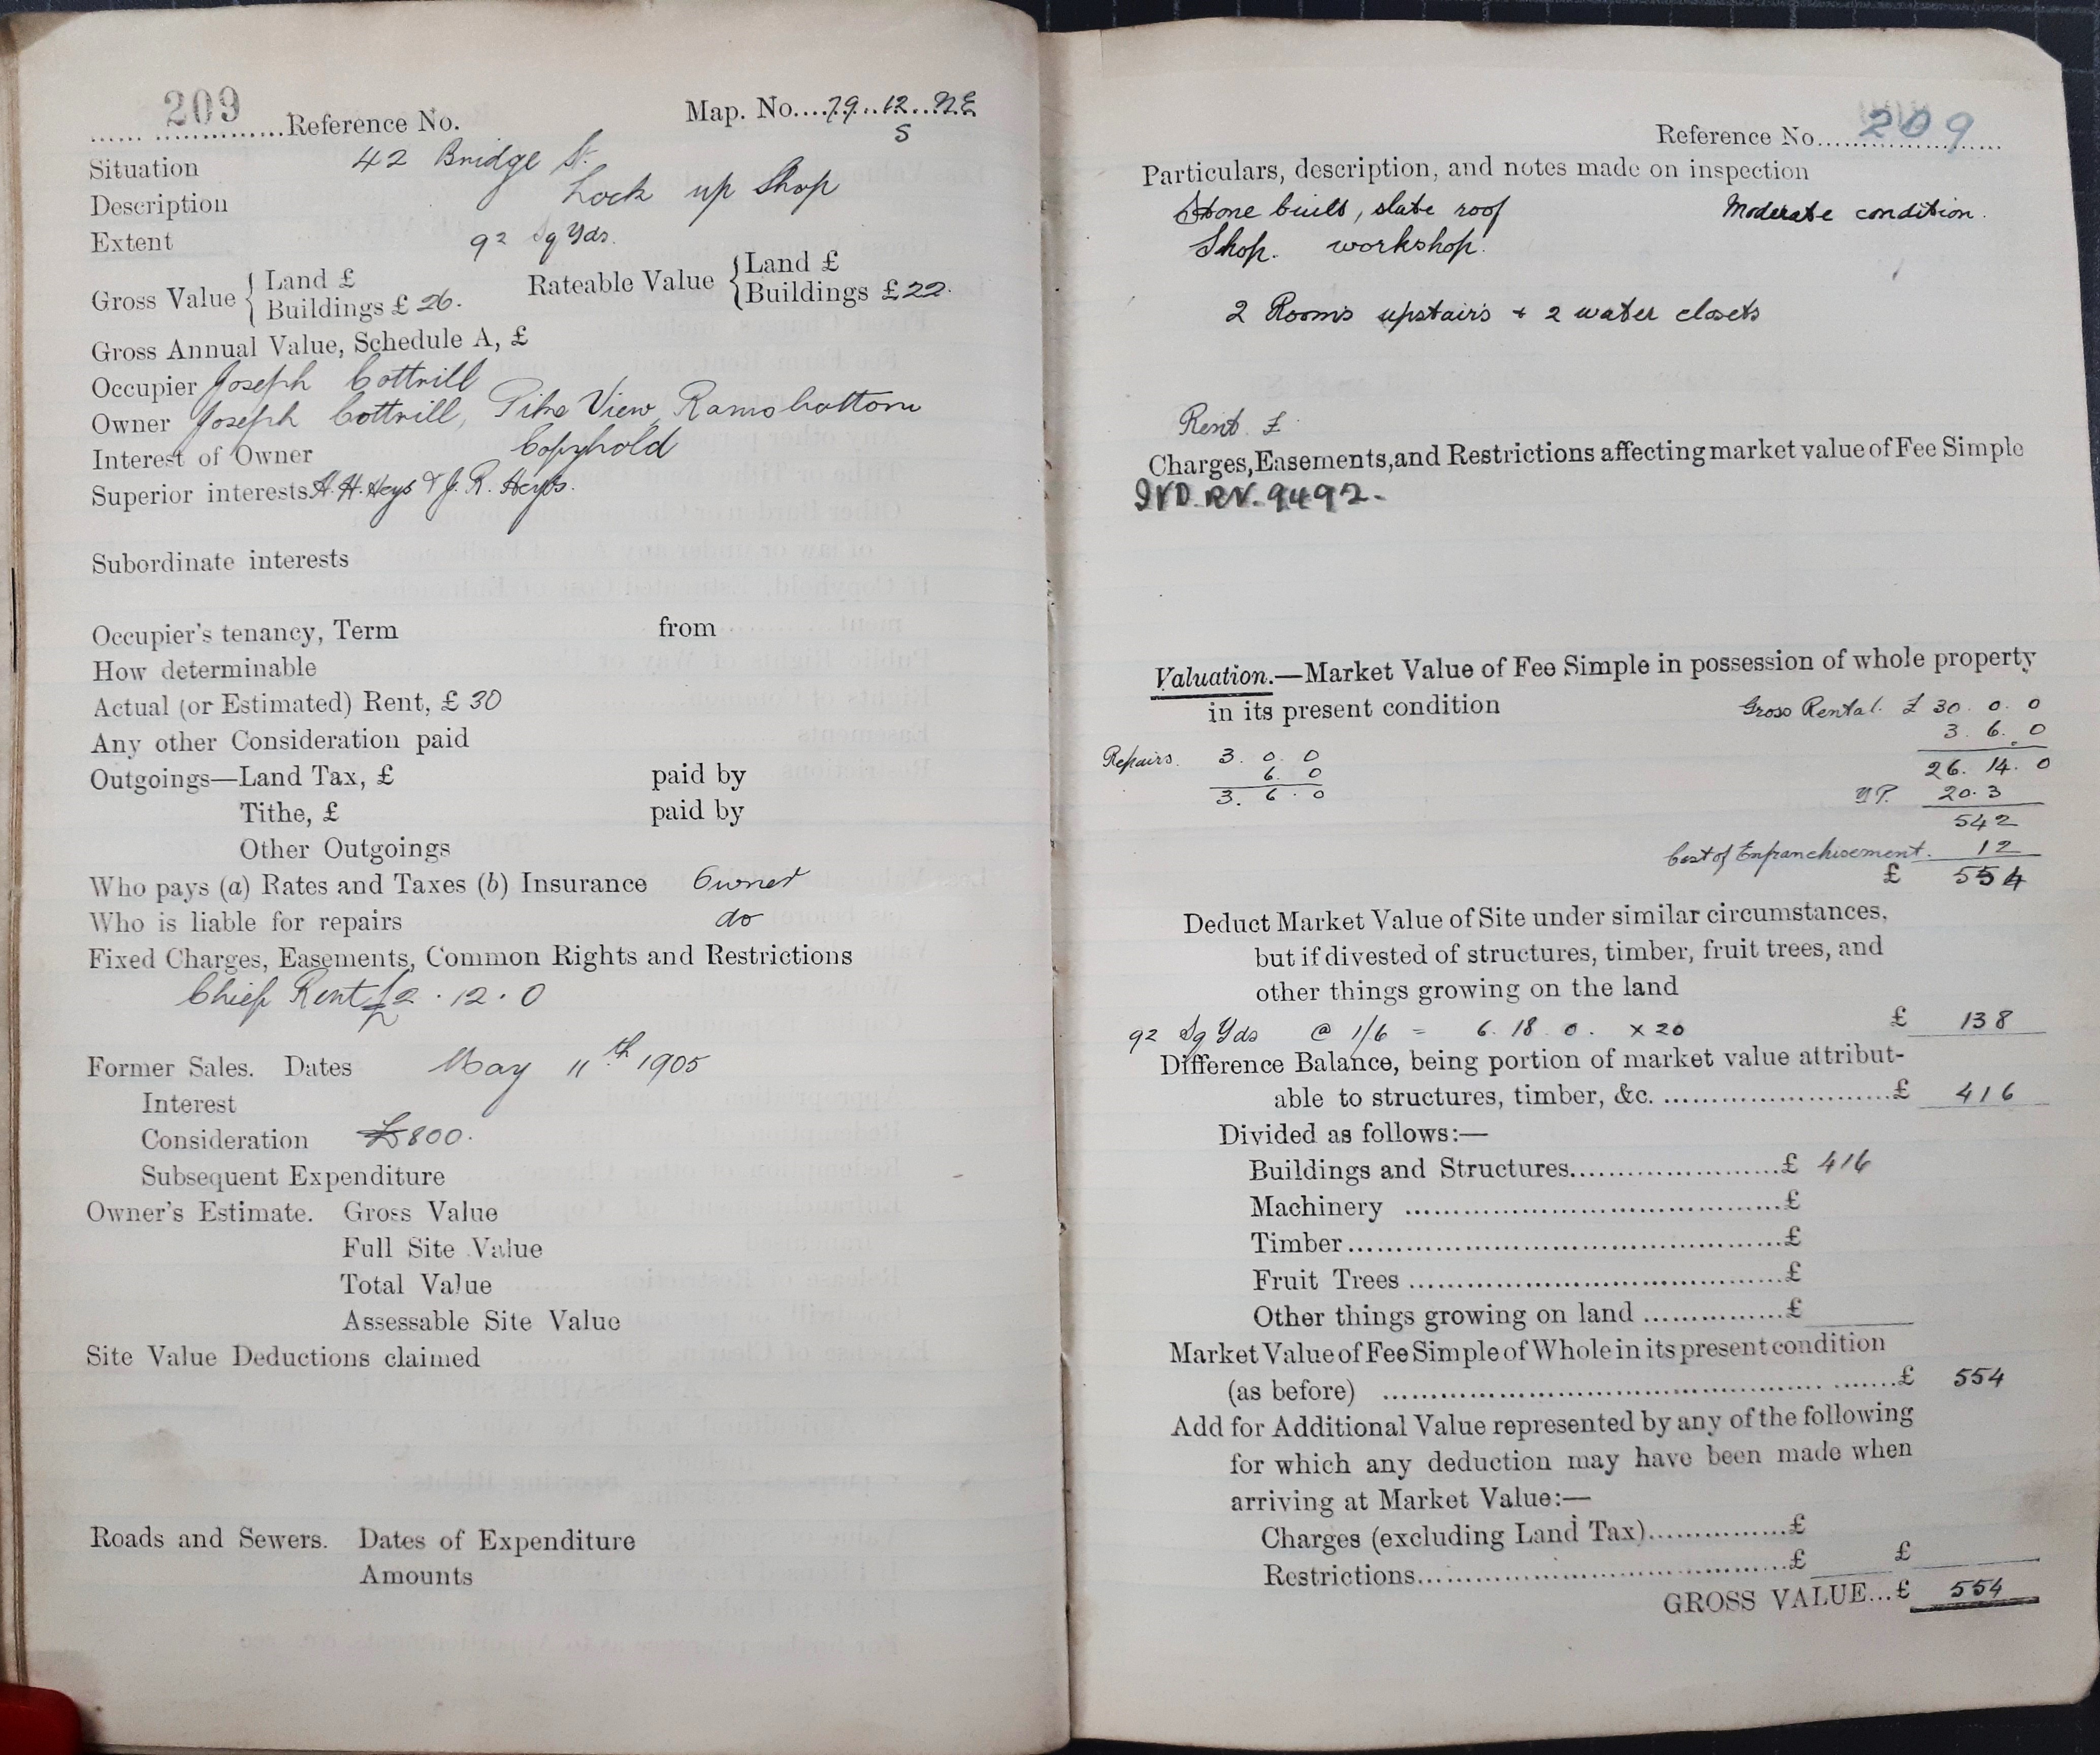 209
Reference No. Map. No....79..12..N.E
S
Situation 42 Bridge St.
Description Lock up Shop
Extent 92 Sq Yds.
Gross Value { Land £ Rateable Value { Land £
Buildings £ 26. Buildings £ 22.
Gross Annual Value, Schedule A, £
Occupier Joseph Cottrill
Owner Joseph Cottrill, Pike View, Ramsbottom
Interest of Owner Copyhold
Superior interests A. H. Heys & J. R. Heys.
Subordinate interests
Occupier's tenancy, Term from
How determinable
Actual (or Estimated) Rent, £ 30
Any other Consideration paid
Outgoings—Land Tax, £ paid by
Tithe, £ paid by
Other Outgoings
Who pays (a) Rates and Taxes (b) Insurance Owner
Who is liable for repairs do
Fixed Charges, Easements, Common Rights and Restrictions
Chief Rent £2 . 12 . 0
Former Sales. Dates May 11th 1905
Interest
Consideration £800.
Subsequent Expenditure
Owner's Estimate. Gross Value
Full Site Value
Total Value
Assessable Site Value
Site Value Deductions claimed
Roads and Sewers. Dates of Expenditure
Amounts
Reference No. 209
Particulars, description, and notes made on inspection
Stone built, slate roof Moderate condition.
Shop. workshop.
2 Rooms upstairs + 2 water closets
Rent. £
Charges, Easements, and Restrictions affecting market value of Fee Simple
IVD. RV. 9492.
Valuation.—Market Value of Fee Simple in possession of whole property
in its present condition Gross Rental. £ 30. 0. 0
3. 6. 0
Repairs. 3. 0. 0 26. 14. 0
6. 0
3. 6. 0 Y.P. 20.3
542
Cost of Enfranchisement. 12
£ 554
Deduct Market Value of Site under similar circumstances,
but if divested of structures, timber, fruit trees, and
other things growing on the land
92 Sq Yds @ 1/6 = 6. 18. 0. x 20 £ 138
Difference Balance, being portion of market value attribut-
able to structures, timber, &c. ........................£ 416
Divided as follows:—
Buildings and Structures......................£ 416
Machinery ......................................£
Timber..........................................£
Fruit Trees ....................................£
Other things growing on land ...............£
Market Value of Fee Simple of Whole in its present condition
(as before) ......................................................£ 554
Add for Additional Value represented by any of the following
for which any deduction may have been made when
arriving at Market Value:—
Charges (excluding Land Tax)...............£
Restrictions......................................£ £
GROSS VALUE...£ 554